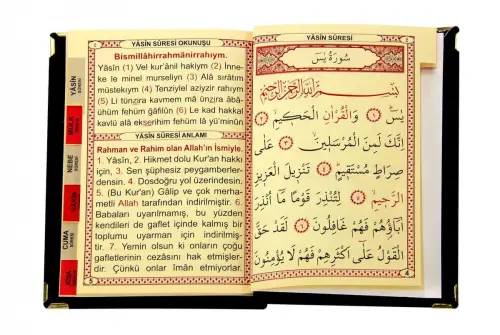 YÂSİN SÛRESİ OKUNUŞU
Bismillâhirrahmânirrahıym.
Yâsîn (1) Vel kur'ânil hakiym (2) İnne-
ke le minel murseliyn (3) Alâ sırâtım
müstekıym (4) Tenziylel aziyzir rahıym
(5) Li tünzira kavmem mâ ünzira âbâ-
ühüm fehüm ğâfilûn (6) Le kad hakkal
kavlü alâ ekserihim fehüm lâ yü'minûn
YÂSİN SÛRESİ ANLAMI
Rahman ve Rahim olan Allah'ın İsmiyle.
1. Yâsîn, 2. Hikmet dolu Kur'an hakkı
için, 3. Sen şüphesiz peygamberler-
densin. 4. Dosdoğru yol üzerindesin.
5. (Bu Kur'an) Gâlip ve çok merha-
metli Allah tarafından indirilmiştir. 6.
Babaları uyarılmamış, bu yüzden
kendileri de gaflet içinde kalmış bir
toplumu uyarman için indirilmiş-
tir. 7. Yemin olsun ki onların çoğu
gafletlerinin cezasını hak etmişler-
dir. Çünkü onlar îmân etmiyorlar.
5
YÂSİN
SÛRESİ
MÜLK
SÛRESİ
NEBE
SÛRESİ
CUMA
SÛRESİ
YÂSİN SÛRESİ
سُورَةُ يٰسٓ
بِسْمِ اللّٰهِ الرَّحْمٰنِ الرَّحِيمِ
يٰسٓ ﴿١﴾ وَالْقُرْاٰنِ الْحَكِيمِ ﴿٢﴾
اِنَّكَ لَمِنَ الْمُرْسَلِينَ ﴿٣﴾ عَلٰى
صِرَاطٍ مُسْتَقِيمٍ ﴿٤﴾ تَنْزِيلَ الْعَزِيزِ
الرَّحِيمِ ﴿٥﴾ لِتُنْذِرَ قَوْمًا مَٓا اُنْذِرَ
اٰبَٓاؤُ۬هُمْ فَهُمْ غَافِلُونَ ﴿٦﴾ لَقَدْ حَقَّ
الْقَوْلُ عَلٰٓى اَكْثَرِهِمْ فَهُمْ لَا يُؤْمِنُونَ
4